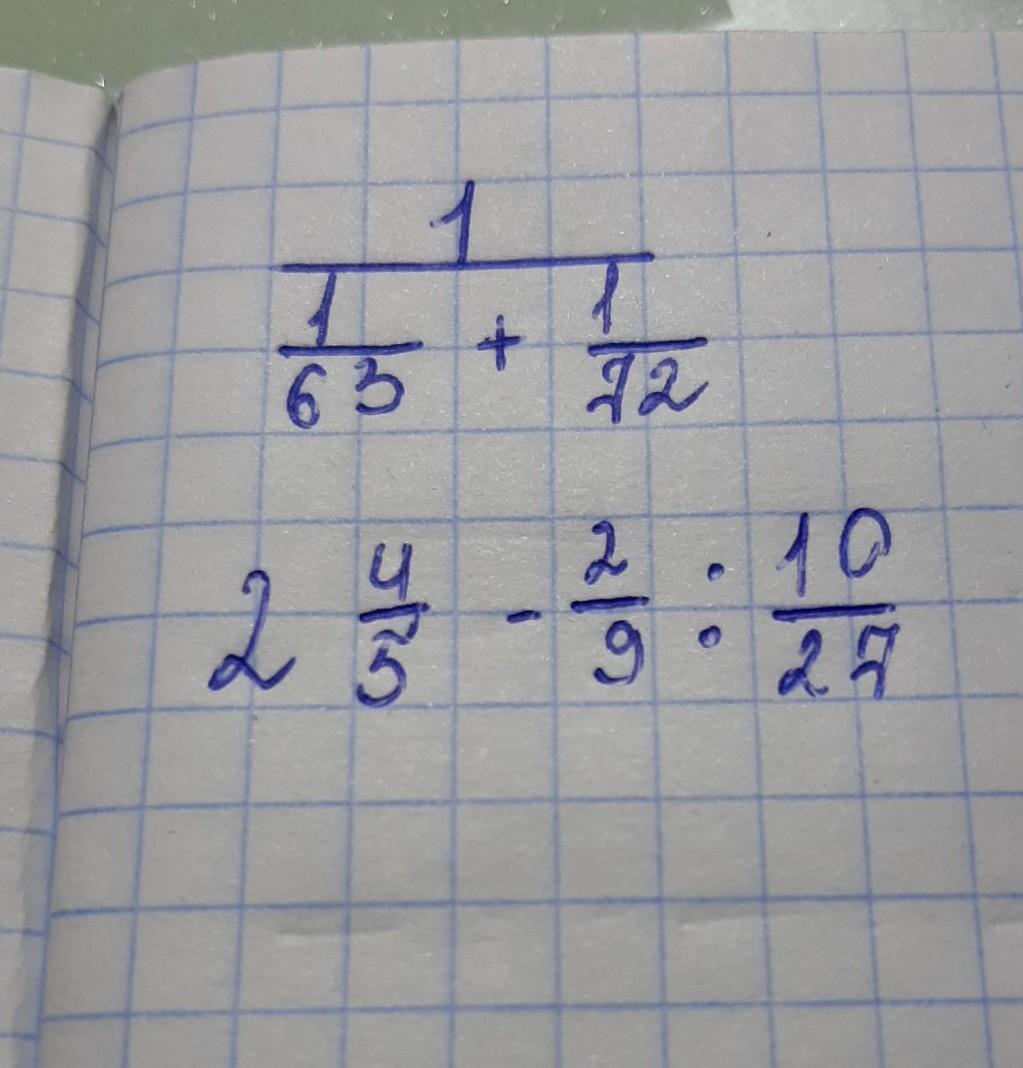 1
1/63 + 1/72
2 4/5 - 2/9 : 10/27